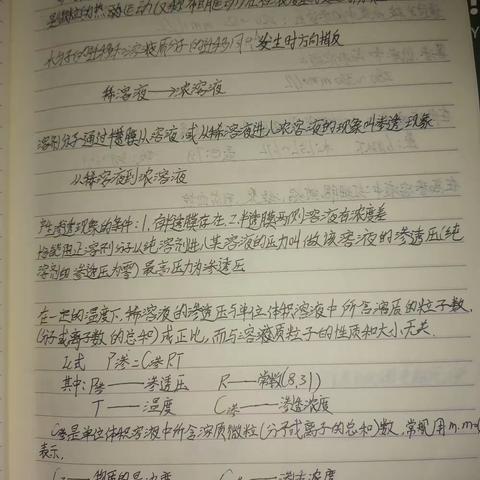 水分子的
发生时方向相反
稀溶液——>浓溶液
溶剂分子通过半透膜从溶液,或从稀溶液进入浓溶液的现象叫渗透现象
从稀溶液到浓溶液
产生渗透现象的条件:1.有半透膜存在.2.半透膜两侧溶液有浓度差
恰能阻止溶剂分子从纯溶剂进入某溶液的压力叫做该溶液的渗透压(纯
溶剂的渗透压为零)最高压力为渗透压
在一定的温度下,稀溶液的渗透压与单位体积溶液中所含溶质的粒子数,
(分子或离子数的总和)成正比,而与溶液质粒子的性质和大小无关.
公式 P渗=C渗RT
其中:P渗——渗透压 R——常数(8.31)
T——温度 C渗——渗透浓度
C渗是单位体积溶液中所含溶质微粒(分子或离子的总和)数,常规用m.mol
表示.